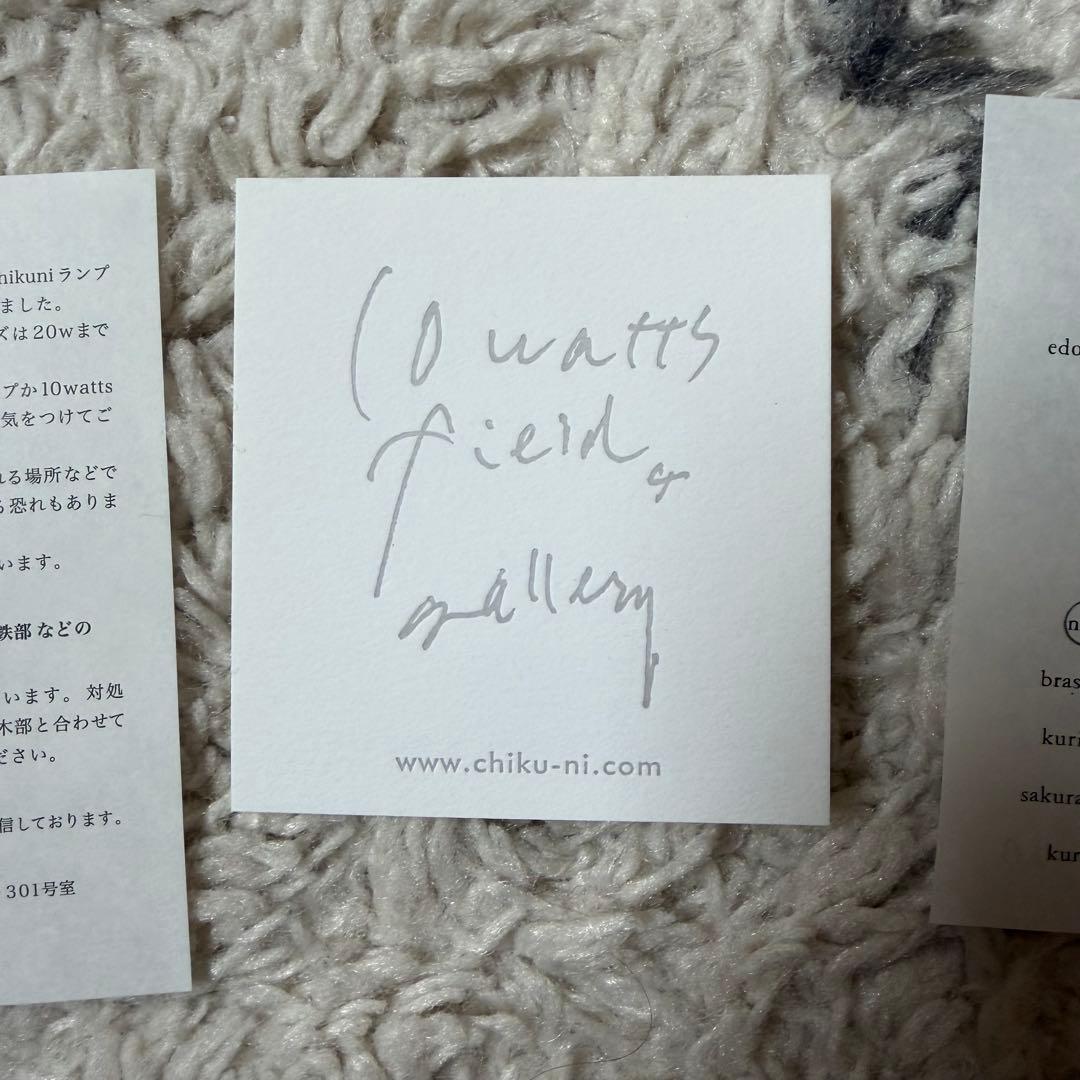 hikuniランプ
ました。
ズは20wまで
プか10watts
気をつけてご
れる場所などで
る恐れもありま
います。
鉄部 などの
います。対処
木部と合わせて
ださい。
信しております。
301号室
10 watts
field &
gallery
www.chiku-ni.com
edo
n
bras
kuri
sakura
kur